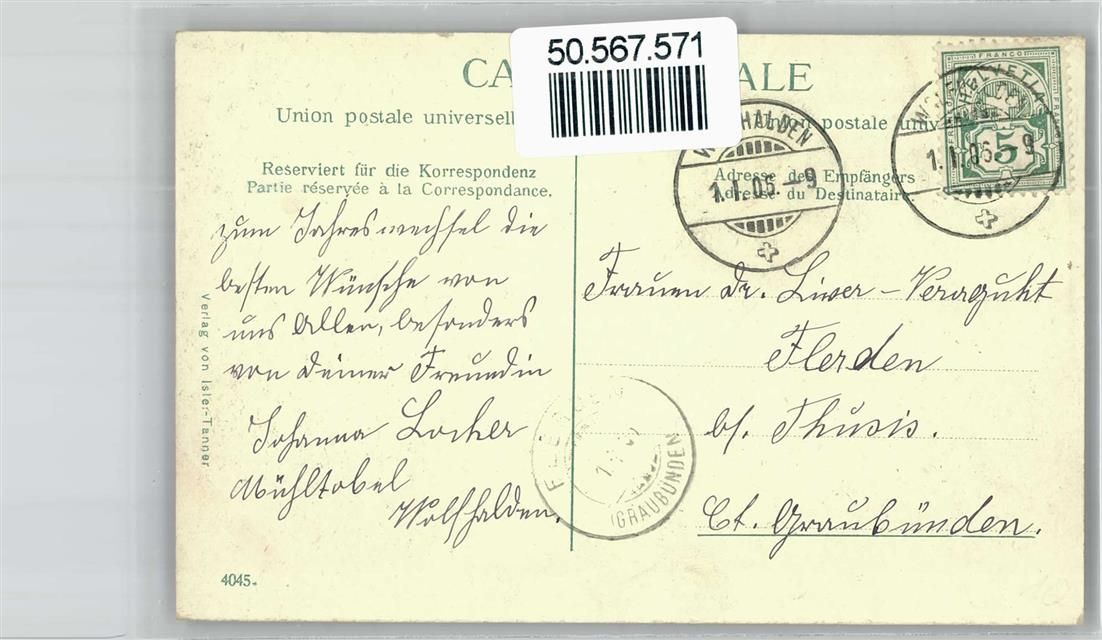 50.567.571
CA
ALE
Union postale universell
Union postale univ
Reserviert für die Korrespondenz
Partie réservée à la Correspondance.
Adresse des Empfängers
Adresse du Destinataire.
FRANCO
HELVETIA
5
WOLFHALDEN
1.I.06.-9
WOLFHALDEN
1.I.06.-9
zum Jahreswechsel die
besten Wünsche von
uns Allen, besonders
von Deiner Freundin
Johanna Locher.
Mühltobel
Wolfhalden.
Frauen Dr. Liver-Veraguht
Flerden
b/. Thusis.
Ct. Graubünden.
(GRAUBÜNDEN
Verlag von Isler-Tanner
4045-